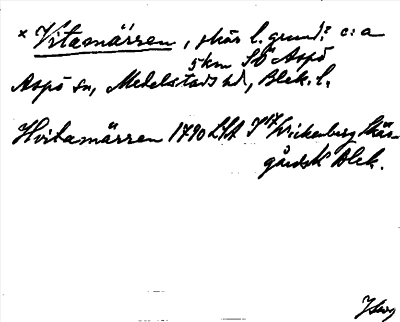 * Vitamärren, skär l. grund? c:a
5 km SO Aspö
Aspö sn, Medelstads hd, Blek. l.
Hvitamärren 1790 LSA I17 Wrikenberg Skär-
gårdsk Blek.